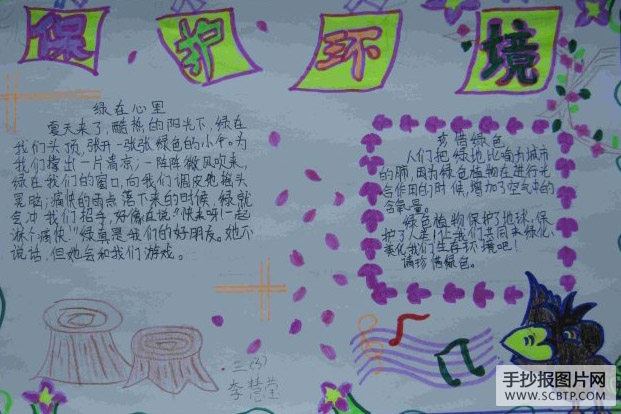 保护环境
绿在心里
夏天来了,酷热的阳光下,绿在
我们头顶,张开一张张绿色的小伞。为
我们撑出一片清凉;一阵阵微风吹来,
绿在我们的窗口,向我们调皮地摇头
晃脑;痛快的雨点落下来的时候,绿就
会冲我们招手,好像在说“快来呀!一起
淋个痛快!”绿真是我们的好朋友。她不
说话,但她会和我们游戏。
珍惜绿色
人们把绿地比喻为城市
的肺,因为绿色植物在进行光
合作用的时候,增加了空气中的
含氧量。
绿色植物保护了地球,保
护了人类!让我们共同来绿化、
美化我们生存环境吧!
请珍惜绿色。
三(3)
李慧莹
手抄报图片网
WWW.SCBTP.COM